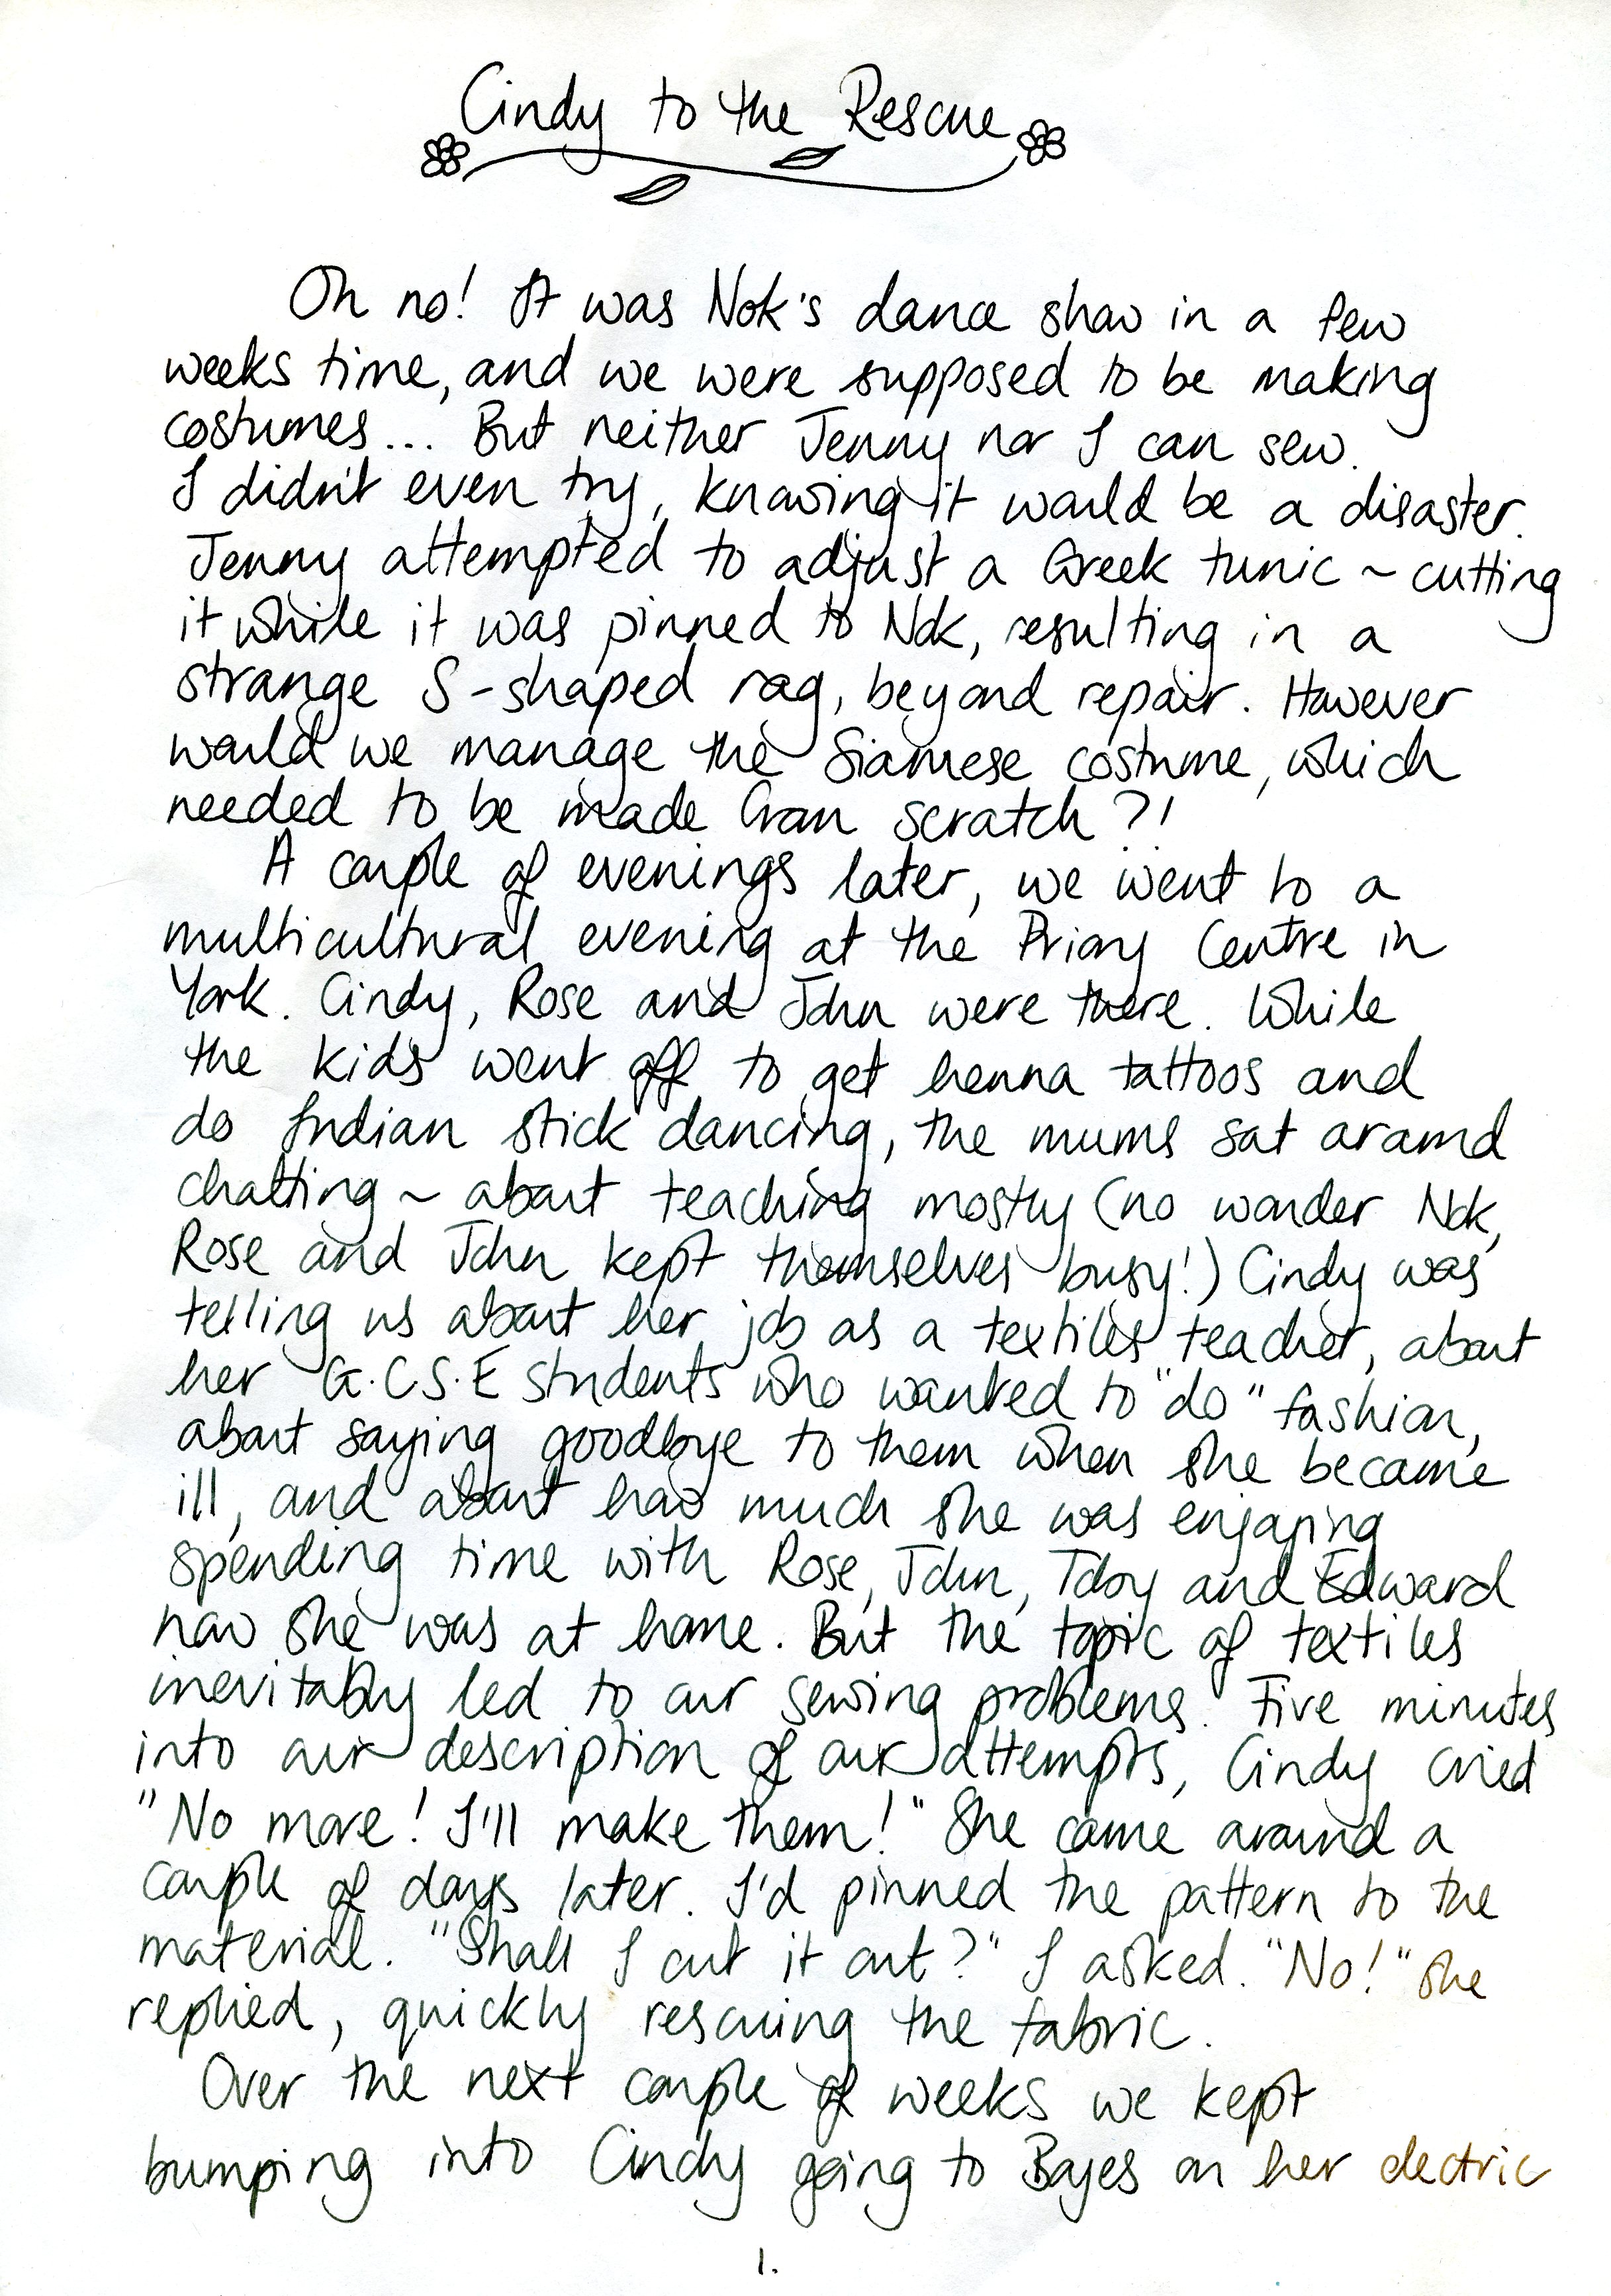 Cindy to the Rescue
Oh no! It was Nok's dance show in a few
weeks time, and we were supposed to be making
costumes... But neither Jenny nor I can sew.
I didn't even try, knowing it would be a disaster.
Jenny attempted to adjust a Greek tunic ~ cutting
it while it was pinned to Nok, resulting in a
strange S-shaped rag, beyond repair. However
would we manage the Siamese costume, which
needed to be made from scratch?!
A couple of evenings later, we went to a
multicultural evening at the Priory Centre in
York. Cindy, Rose and John were there. While
the kids went off to get henna tattoos and
do Indian stick dancing, the mums sat around
chatting ~ about teaching mostly (no wonder Nok,
Rose and John kept themselves busy!) Cindy was
telling us about her job as a textiles teacher, about
her G.C.S.E students who wanted to "do" fashion,
about saying goodbye to them when she became
ill, and about how much she was enjoying
spending time with Rose, John, Toby and Edward
now she was at home. But the topic of textiles
inevitably led to our sewing problems. Five minutes
into our description of our attempts, Cindy cried
"No more! I'll make them!" She came around a
couple of days later. I'd pinned the pattern to the
material. "Shall I cut it out?" I asked. "No!" she
replied, quickly rescuing the fabric.
Over the next couple of weeks we kept
bumping into Cindy going to Boyes on her electric
1.